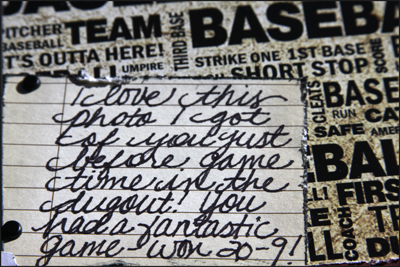 PITCHER TEAM THIRD BASE BASEB
BASEBALL
T'S OUTTA HERE!
UMPIRE
STRIKE ONE 1ST BASE
SHORT STOP
SCORE
CLEATS
BASE
RUN CA
SAFE AMER
BAL
LI FIRS
COACH
LL
Du
I love this
photo I got
of you just
before game
time in the
dugout! You
had a fantastic
game - won 20-9!